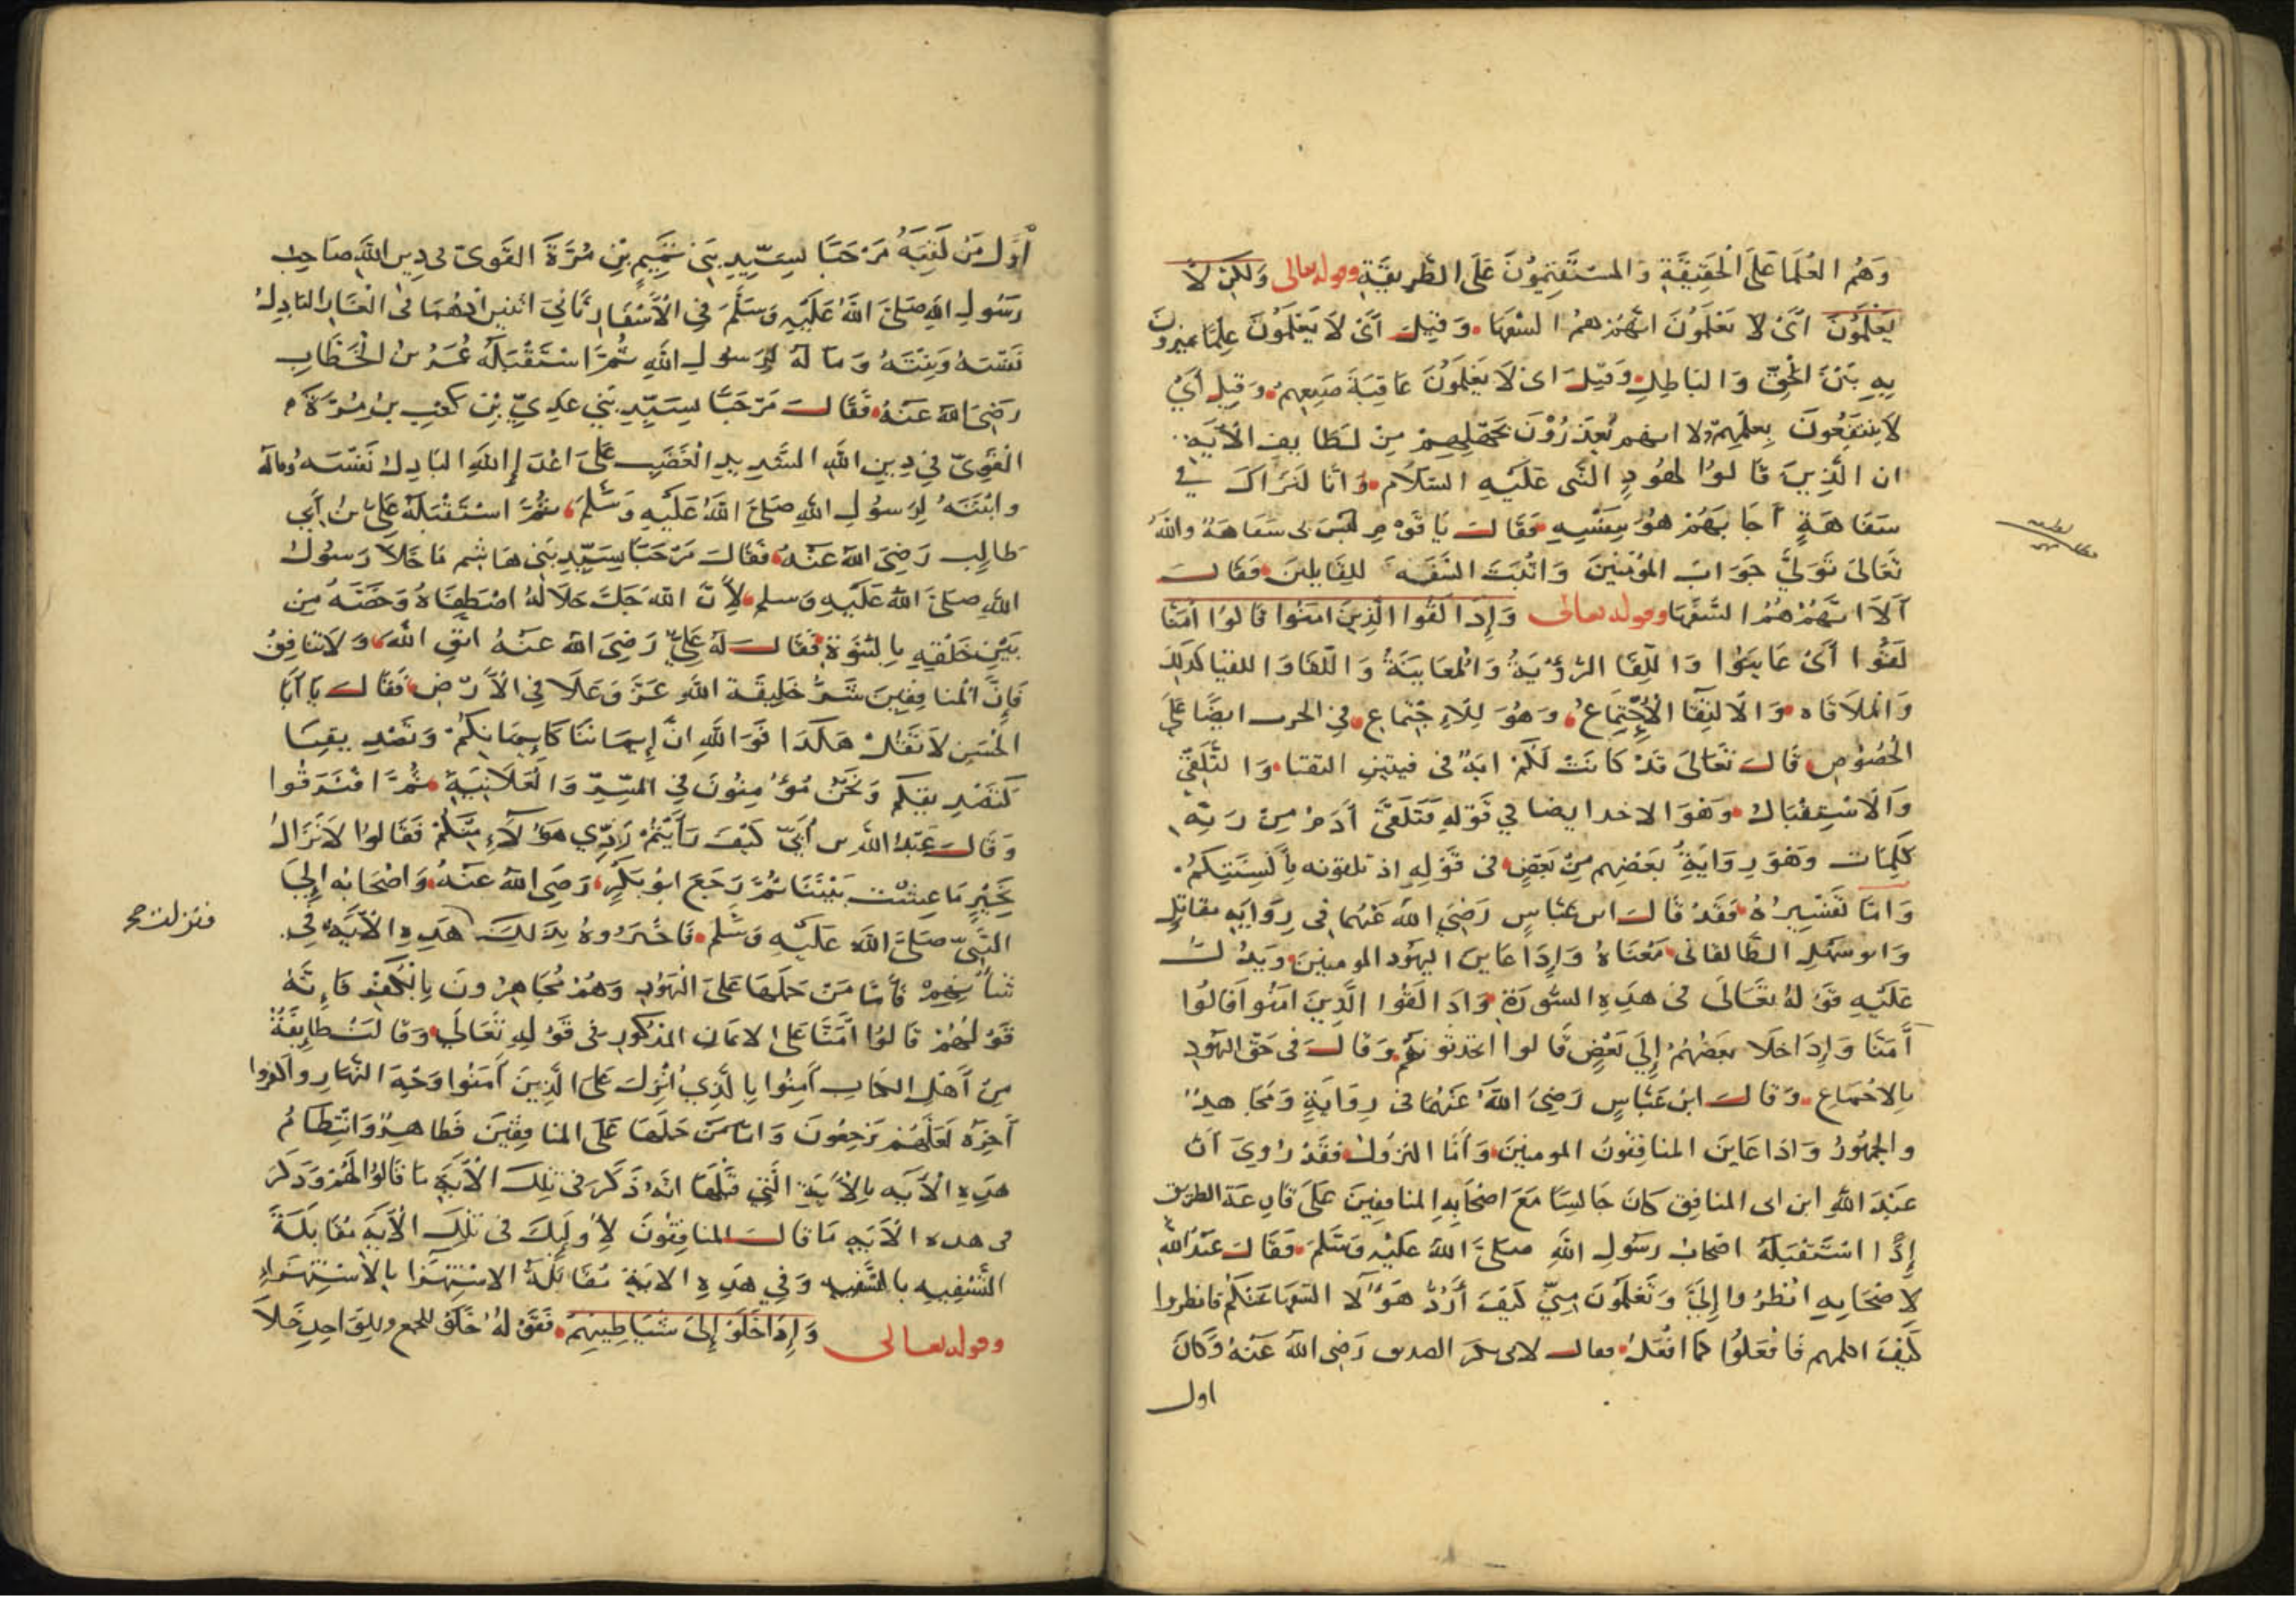 وَهُم العُلَمَا عَلَى الْحَقِيقَةِ وَالمسْتَقِيمُونَ عَلَى الطَّرِيقَةِ وقوله تعالى وَلَكِنْ لَا
يَعْلَمُونَ اَىْ لَا يَعْلَمُونَ انَّهُمْ هُمُ السُّفهَا وَقِيلَ اَىْ لَا يَعْلَمُونَ عِلمًا يميزونَ
بِهِ بَيْنَ الْحَقِّ وَالبَاطِلِ وَقِيلَ اى لَا يَعْلَمُونَ عَاقِبَةَ صَنِيعِهِمْ وَقِيلَ أَىْ
لَا يَنتَفِعُونَ بِعِلْمِهِمْ ولا انهم يُعْذَرُوْنَ بجَهْلِهِمْ مِنْ لَطَايف الْآيَةِ
ان الَّذِينَ قَالوُا لِهُودٍ النَّبى عَلَيْهِ السَّلَام وَانَّا لَنَرَاكَ فِي
سَفَاهَةٍ أَجَابَهُمْ هُوَ بِنَفْسِهِ فَقَالَ يَا قَوْمِ لَيْسَ بى سَفَاهَةٌ واللهُ
لطيفه
تَعَالَى تَوَلَّى جَوَابَ المؤمنين وَاثْبَتَ السَّفَهَ للِقَايلين فَقَالَ
أَلَا انَّهُمْ هُمُ السُّفَهَا وقوله تعالى وَإِذَا لَقُوا الَّذِينَ امَنُوا قَالوُا امَنَّا
لَقُوا أَىْ عَايَنوُا وَاللِّقَا الرُّؤْيَةُ وَالْمعَايَنَةُ وَاللِّقاوَا للقيا كذلك
وَالْملَاقَاه وَالالتِقَا الْإِجْتِمَاعُ وَهُوَ لِلْاِجْتِماعِ فِي الحرب ايضًا عَلَى
الْخصُوْصِ قَالَ تَعَالَى قَدْ كَانَتْ لَكُمْ ايَةٌ فى فيتين التقتا وَالتَّلَقِّي
وَالْاسْتِقْبَال وَهوَ الاخد ايضا فِي قَوْلهِ فَتَلَقَّى أَدَمُ مِنْ رَبِّهِ
كَلِمَات وَهوَ رِوَايَةُ بَعْضِهِم مِنْ بَعْضٍ فى قَوْلِهِ اذ تلقونه بِأَلْسِنَتِكُمْ
وَامَّا تَفْسِيرُهُ فَقَدْ قَالَ ابن عَبَّاسٍ رَضِيَ اللهُ عَنْهُما فِى رِوَايَهِ مقاتلِ
وَابو سَهْلِ الطَّالقانى مَعْنَاهُ وَإِذَا عَاينَ اليهُود المومنينَ وَيَدُلُّ
عَلَيْهِ قَوْلهُ تعَالَى فى هذِهِ السُّورَة وَاذَا لَقُوا الَّذِينَ امَنُوا قَالُوا
أَمَنَّا وَإِذَا خَلَا بَعْضُهُمْ إِلَى بَعْضٍ قَالوا اتحدثونهُم وَقَالَ فى حَقِّ اليَهُودِ
بِالاجْمَاعِ وَقَالَ ابْن عَبَّاسٍ رَضِيَ اللهُ عَنْهُمَا فى رِوَايَةٍ وَمُجَاهِدٌ
والجُمْهُورُ وَاذَا عَاينَ المنَافِقُونَ المومنين وَأَمَّا النزُولُ فَقَدْ رُوِيَ اَنَّ
عَبْدَ اللهِ ابن ابى المنافِق كَانَ جَالِسًا مَعَ اصْحَابهِ المنَافِقينَ عَلَى قَارِعَة الطريق
إِذَا اسْتَقْبَلَهُ اصْحَاب رَسُولِ اللهِ صَلَّى اللهُ عَلَيْهِ وَسَلَّمَ فَقَالَ عَبْدُ اللهِ
لِاصْحَابِهِ انْظُرُوا إِلَىَّ وَتَعْلَمُونَ مِنِّي كَيْفَ أَرُدُّ هَؤُلَا السُّفَهَا عَنْكُمْ فانظروا
كَيْفَ اكلمهم فَافْعَلُوا كَمَا افْعَلُ فقال لابى بكر الصديق رَضِى اللهُ عَنْهُ وَكَانَ
اول
أَوَّل مَن لَقِيَهُ مَرْحَبَا بِسَيِّدِ بَنى تَمِيمِ بْنِ مُرَّةَ القَوِىّ فى دِينِ اللهِ صَاحِب
رَسُولِ اللهِ صَلَّى اللهُ عَلَيْهِ وَسَلَّمَ فِي الْأَسْفَارِ ثَانِيَ اثنين اذْهُمَا فى الْغَارِ البَاذِلُ
نَفْسَهُ وَبِنْتَهُ وَمَالَهُ لِرَسُولِ اللهِ ثُمَّ اسْتَقْبَلَهُ عُمَرُ بن الْخَطَّابِ
رَضِىَ اللهُ عَنْهُ فَقَالَ مَرْحَبًا بِسَيِّدِ بَنِي عَدِيِّ بْنِ كَعْبِ بن مُرَّةَ
الْقَوِىّ فِي دِينِ اللهِ الشَّدِيدِ الْغَضَبِ عَلَى اعْدَاءِ اللهِ البَاذِل نَفْسَهُ وَمَالَهُ
وابْنَتَهُ لِرَسُولِ اللهِ صَلَّى اللهُ عَلَيْهِ وَسَلَّمَ ثُمَّ اسْتَقْبَلَهُ عَلِىُّ بنُ أَبِي
طَالِب رَضِىَ اللهُ عَنْهُ فَقَالَ مَرْحَبًا بِسَيِّدِ بَنِي هَاشِم مَا خَلَا رَسُولُ
اللهِ صَلَّى اللهُ عَلَيْهِ وَسلم لِأَنَّ اللهَ جَلَّ جَلَالُهُ اصْطَفَاهُ وَخَصَّهُ مِن
بَيْنِ خَلْقِهِ بِالنُّبُوَّةِ فَقَالَ لَهُ عَلِيٌّ رَضِيَ اللهُ عَنْهُ اتَّقِ اللهَ وَلَا تنَافِقْ
فَإِنَّ الْمنَافِقِينَ شَرُّ خَلِيقَة اللهِ عَزَّ وَعَلَا فِي الْأَرْضِ فَقَالَ يَا أَبَا
الْحَسَنِ لَا تَقُلْ هَكَذَا فَوَاللهِ انَّ إِيمَانَنَا كَإِيمَانِكُمْ وَتَصْدِيقِنَا
كَتَصْدِيقِكُم وَنَحْنُ مُؤْمِنُونَ فِي السِّرِّ وَالْعَلَانِيَةِ ثُمَّ افْتَرَقُوا
وَقَالَ عَبْدُ اللهِ بن أُبَيّ كَيْفَ رَأَيْتُمْ رَدِّي هَؤُلَاءِ عَنْكُمْ فَقَالوُا لَا نَزَالُ
بِخَيْرٍ مَا عِشْتَ بَيْنَنَا ثُمَّ رَجَعَ ابُو بَكْرٍ رَضِىَ اللهُ عَنْهُ وَاصْحَابُه إِلَى
النَّبِيّ صَلَّى اللهَ عَلَيْهِ وَسَلَّم فَاخْبَرُوهُ بِذَلِكَ هَذِهِ الْآيَة فِى
فنزلت صح
شَأْنِهِمْ فَأَمَّا مَنْ حَمَلَهَا عَلَى الْيَهُودِ وَهُمْ مُجَاهِرُونَ بِالْكُفْرِ فَاِنَّهُ
قَوْلُهُمْ قَالُوا أَمَنَّا عَلَى الايمَانِ المذكُورِ فى قَوْلِهِ تَعَالَى وَقَالَتْ طَايِفَةٌ
مِنْ أَهْلِ الكتابِ آمِنُوا بِالَّذِي أُنْزِلَ عَلَى الَّذِينَ آمَنُوا وَجْهَ النَّهَارِ واكفروا
آخِرَهُ لَعَلَّهُمْ يَرْجِعُونَ وَامَّا مَنْ حَمَلَهَا عَلَى المنَافِقينَ فَظَاهِرٌ وَانْتِظَامُ
هَذِهِ الْآيَه بِالْأَيَةِ الَّتِي قَبْلَهَا انَّهُ ذَكَرَ فى تِلْكَ الْأَيَةِ مَا قَالوُا لَهُمْ وَذَكَرَ
فى هذه الْآيَهِ مَا قَالَ المنَافِقُونَ لِأُولَيِكَ فى تِلْكَ الْأَيَهِ مُقَابَلَةً
التَّسْفِيهِ بالتَّسْفِيهِ وَفِي هَذِهِ الايَة مُقَابَلَةُ الاسْتِهْزَا بِالْاسْتِهْزَاءِ
وقوله تعالى وَإِذَا خَلَوْ إِلَى شَيَاطِينِهِمْ فَقَوْلُهُ خَلَوْ للجمع وللِوَاحِدِ خَلَا